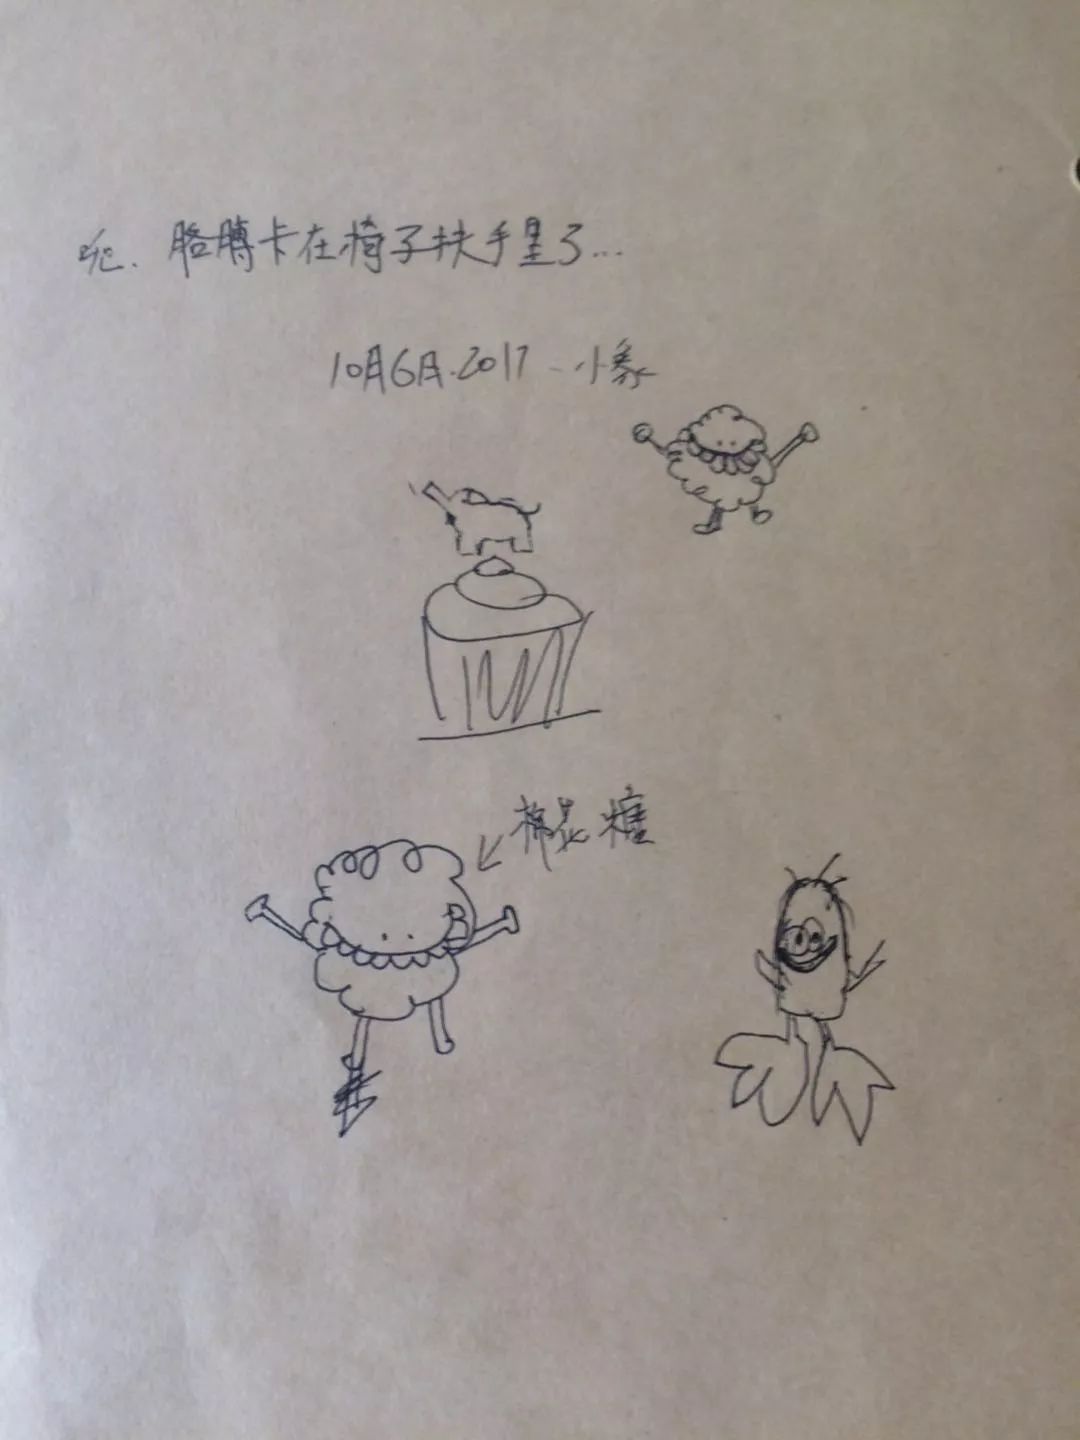 呃. 胳膊卡在椅子扶手里了...
10月6月.2017 - 小象
棉花糖